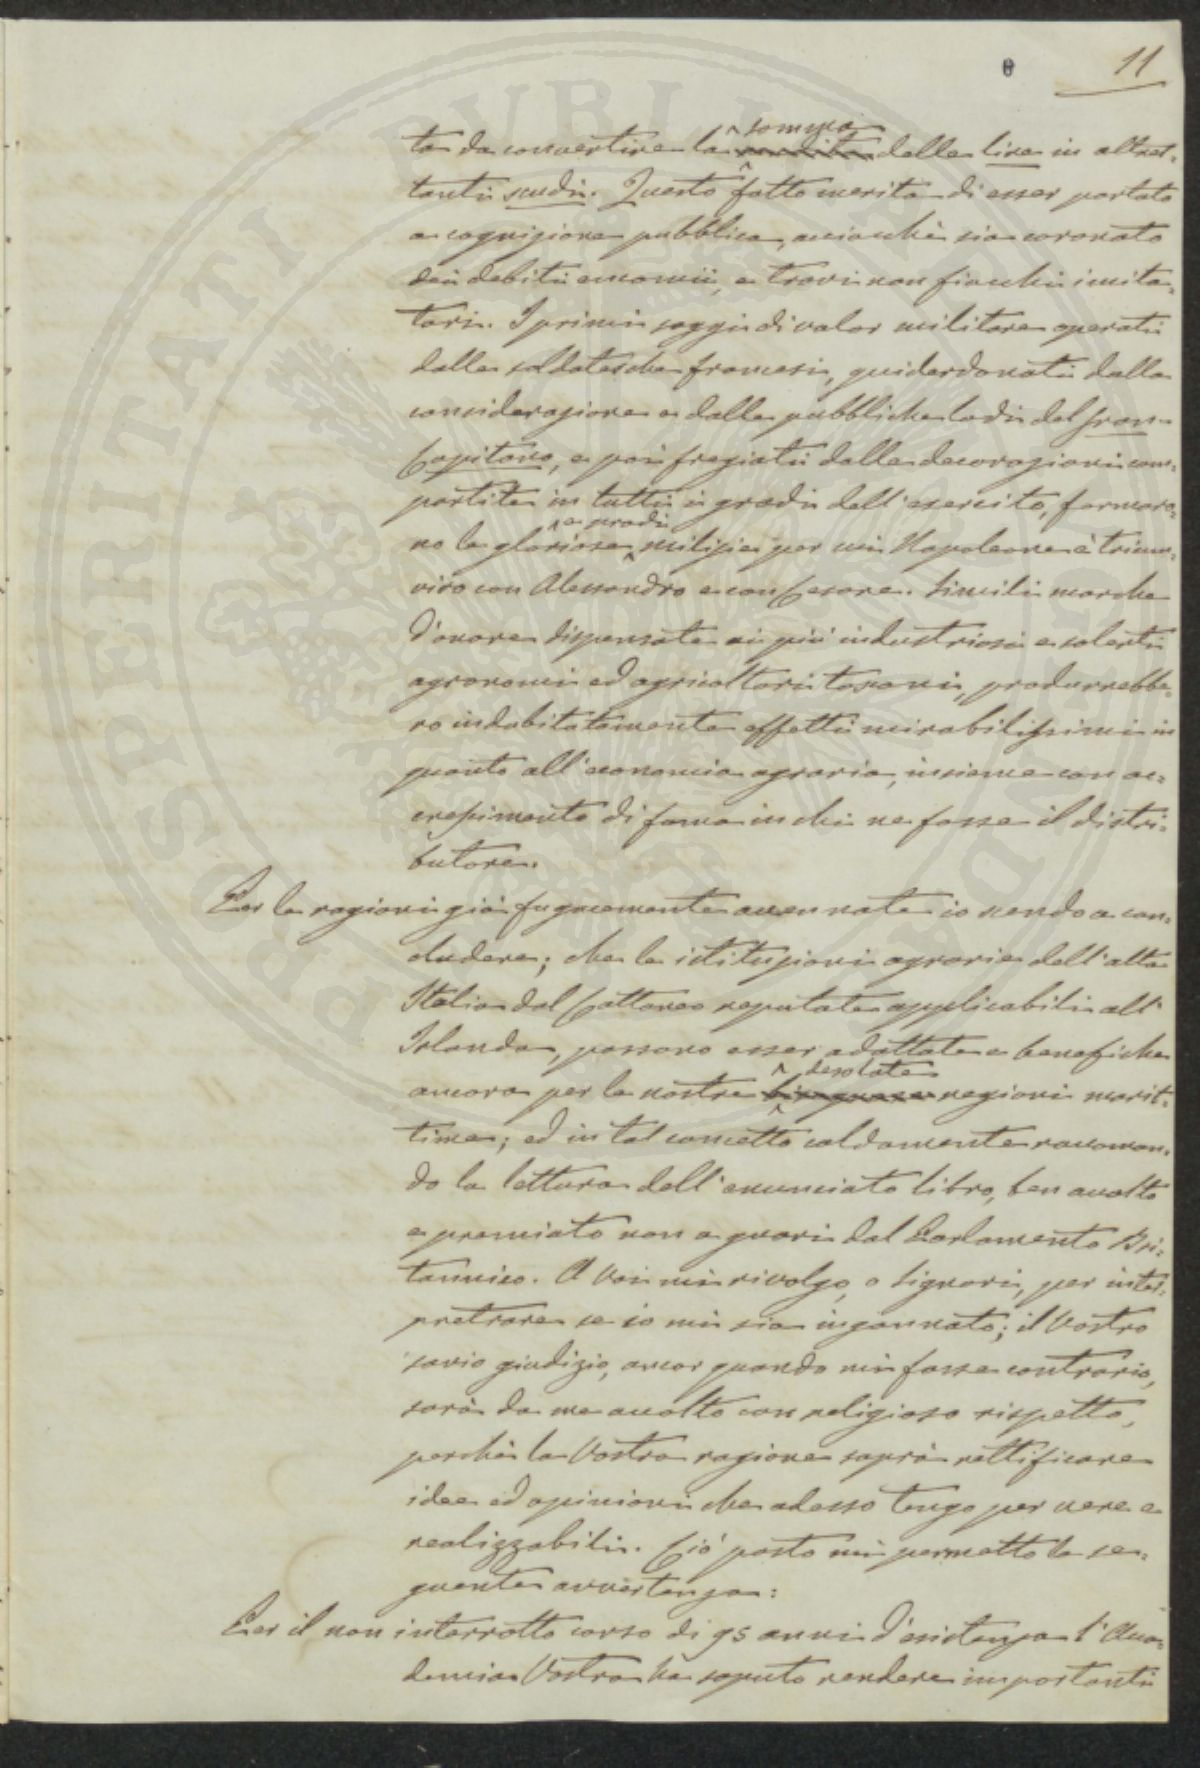 11
ta da convertire la somma delle lire in altret-
tanti scudi. Questo fatto merita di esser portato
a cognizione pubblica, acciocchè sia coronato
dei debiti encomii, e trovi non fiacchi imita-
tori. I primi saggi di valor militare operati
dalle soldatesche francesi, guiderdonati dalla
considerazione e dalle pubbliche lodi del gran-
Capitano, e poi fregiati dalle decorazioni com-
partite in tutti i gradi dell'esercito, formaro-
no le gloriose e prodi milizie per cui Napoleone è trium-
viro con Alessandro e con Cesare. Simili marche
d'onore dispensate ai più industriosi e solerti
agronomi ed agricoltori toscani, produrrebbe-
ro indubitatamente effetti mirabilissimi in
quanto all'economia agraria, insieme con ac-
crescimento di fama in chi ne fosse il distri-
butore.
Per le ragioni già fugacemente accennate io scendo a con-
cludere; che le istituzioni agrarie dell'alta
Italia dal Cattaneo reputate applicabili all'
Irlanda, possono esser adattate e benefiche
ancora per le nostre desolate regioni marit-
time; ed in tal concetto caldamente raccoman-
do la lettura dell'enunciato libro, ben accolto
e premiato non a guari dal Parlamento Bri-
tannico. A Voi mi rivolgo, o Signori, per inter-
pretrare se io mi sia ingannato; il Vostro
savio giudizio, ancor quando mi fosse contrario,
sarà da me accolto con religioso rispetto,
perchè la Vostra ragione saprà rettificare
idee ed opinioni che adesso tengo per vere e
realizzabili. Ciò posto mi permetto la se-
guente avvertenza:
Per il non interrotto corso di 95 anni d'esistenza l'Acca-
demia Vostra ha saputo rendere importanti
PROSPERITATI PUBLICAE